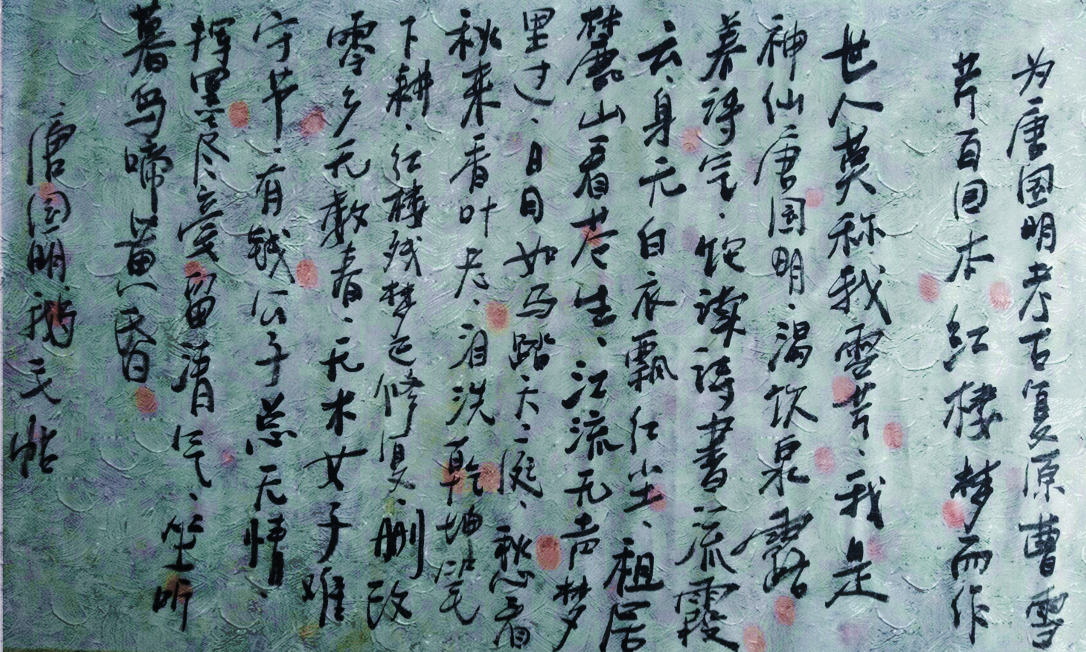 为唐国明考古复原曹雪
芹百回本红楼梦而作
世人莫称我雪芹、我是
神仙唐国明、渴饮泉露
养诗气、饱读诗书流霞
云、身无白衣飘红尘、租居
麓山看苍生、江流无声梦
里过、日日如马踏天庭、秋愁看
秋来香叶老、泪洗乾坤笔
下耕、红楼残梦已修复、删改
零乡无数春、无木女子难
守节、有钱公子总无情
挥墨尽意留清气、坐听
暮鸟啼黄昏
唐国明鹅毛帖